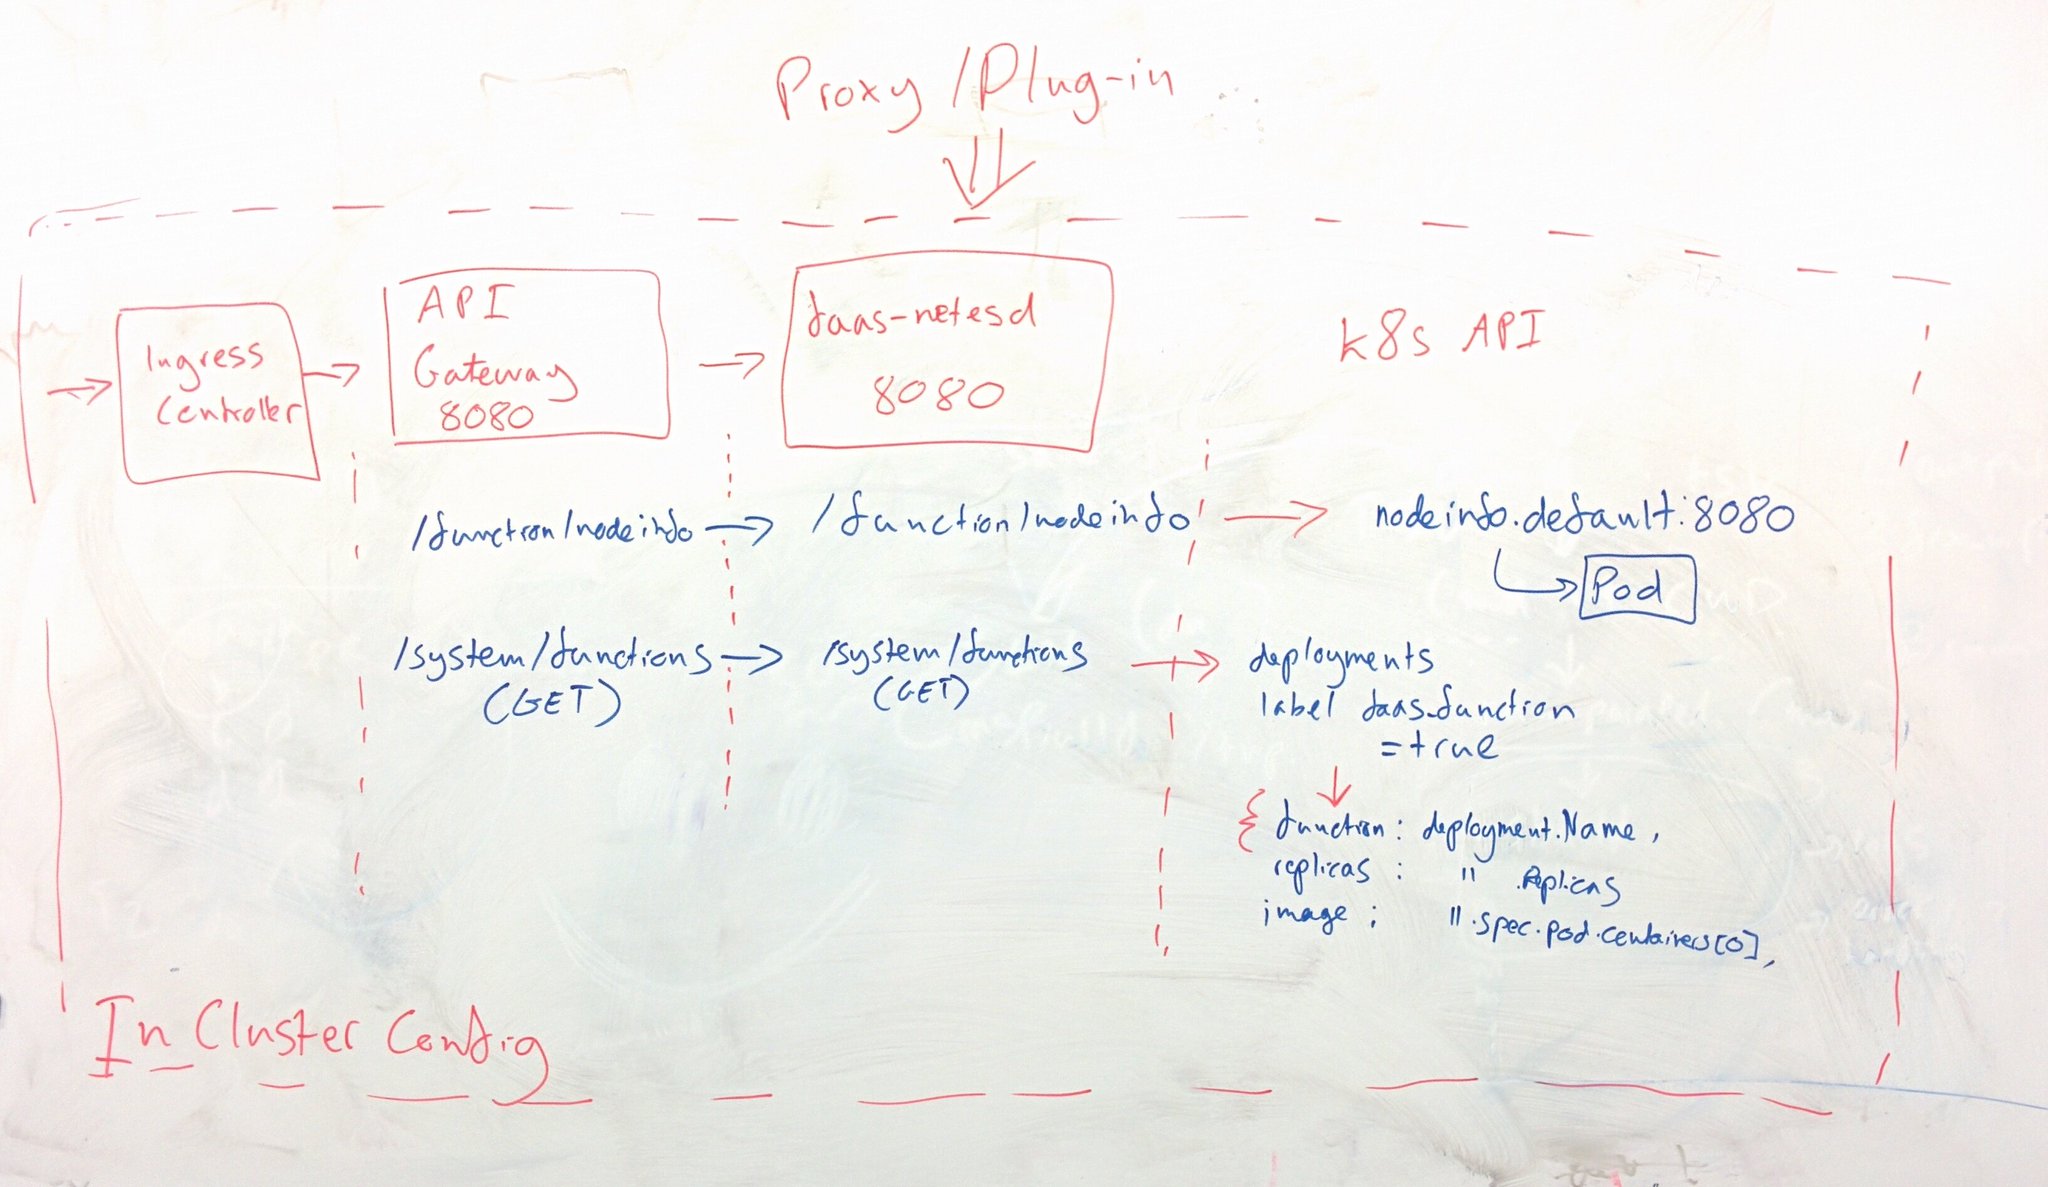 Proxy / Plug-in
Ingress
Controller
API
Gateway
8080
faas-netesd
8080
k8s API
/function/nodeinfo
/function/nodeinfo
nodeinfo.default:8080
Pod
/system/functions
(GET)
/system/functions
(GET)
deployments
label faas.function
=true
{ function: deployment.Name,
replicas : " .Replicas
image : ".spec.pod.containers[0],
In Cluster Config